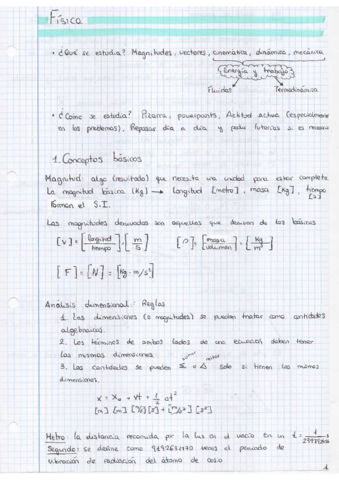 Física
• ¿Qué se estudia? Magnitudes, vectores, cinemática, dinámica, mecánica
Energía y trabajo
Fluidos Termodinámica
• ¿Cómo se estudia? Pizarra, powerpoints, Actitud activa (especialmente
en los problemas), Repasar día a día y pedir tutorías si es necesario
1. Conceptos básicos
Magnitud: algo (resultado) que necesita una unidad para estar completa.
La magnitud básica (Kg) → Longitud [metro], masa [kg], tiempo
[s]
forman el S.I.
Las magnitudes derivadas son aquellas que derivan de las básicas
[V] = [longitud/tiempo] = [m/s] [ρ] = [masa/volumen] = [kg/m³]
[F] = [N] = [kg · m/s²]
Análisis dimensional: Reglas
1. Las dimensiones (o magnitudes) se pueden tratar como cantidades
algebraicas.
2. Los términos de ambos lados de una ecuación deben tener
las mismas dimensiones.
3. Las cantidades se pueden sumar o restar solo si tienen las mismas
dimensiones.
x = x₀ + vt + 1/2 at²
[m] [m] [m/s] [s] + [m/s²] [s²]
Metro: la distancia recorrida por la luz en el vacío en un t = 1/
Segundo: se define como 9192631770 veces el periodo de
vibración de radiación del átomo de cesio.
1